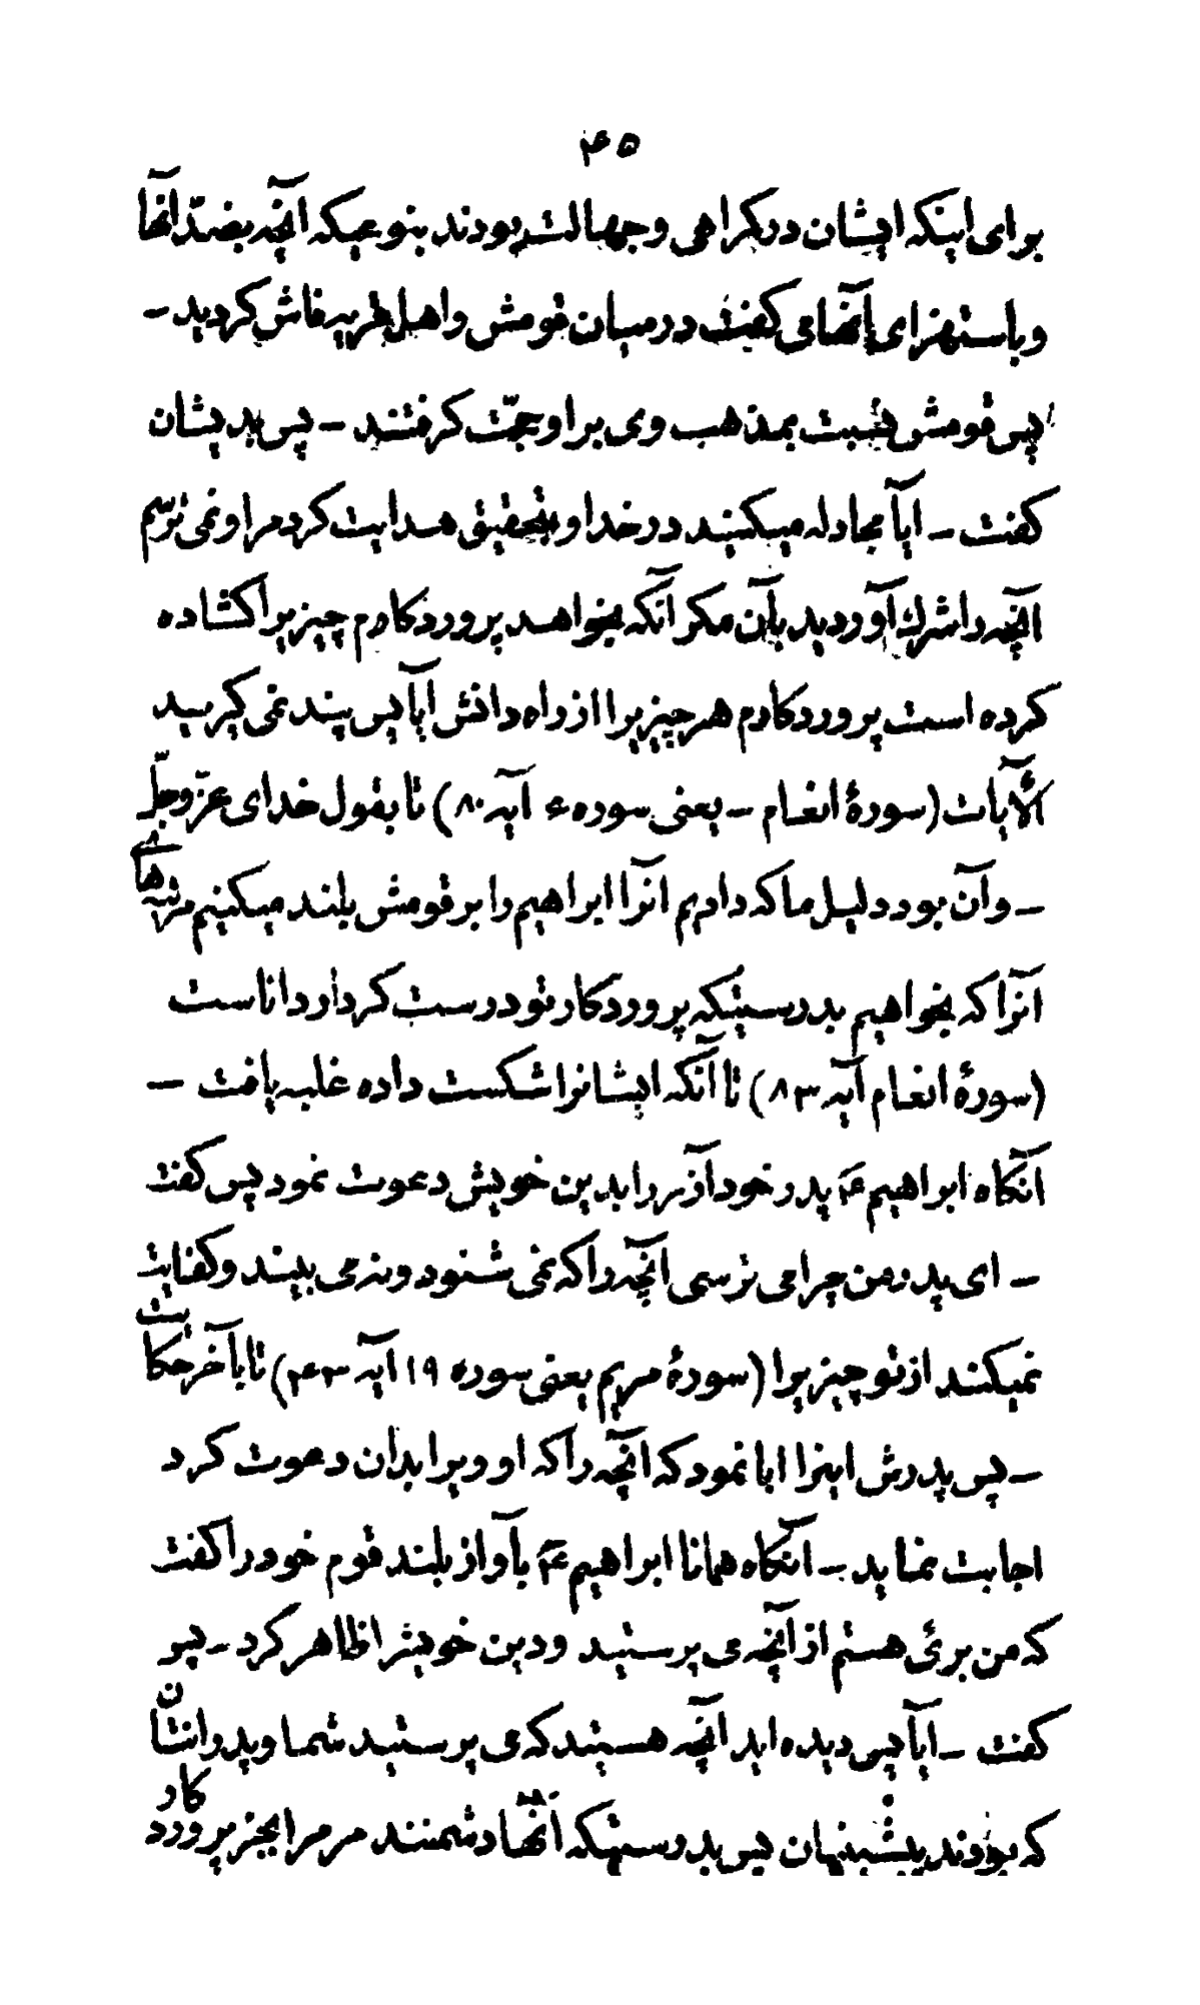 ۴۵
برای اینکه ایشان درگمراهی و جهالت بودند بنوعیکه آنچه بضدّ آنها
و باستهزای آنها می گفت در میان قومش و اهل قریه فاش گردید –
پس قومش نسبت بمذهب وی بر او حجّت گرفتند – پس بدیشان
گفت – ایآ مجادله میکنید در خدا و بتحقیق هدایت کرد مرا و نمی ترسم
آنچه را شرک آوردید بآن مگر آنکه بخواهد پروردگارم چیزیرا گشاده
کرده است پروردگارم هر چیزیرا از راه دانش ایآ پس پند نمی گیرید
الآیات (سورهٔ انعام – یعنی سوره ۶ آیه ۸۰) تا بقول خدای عزّ و جلّ
– و آن بود دلیل ما که دادیم آنرا ابراهیم را بر قومش بلند میکنیم مرتبه‌های
آنرا که بخواهیم بدرستیکه پروردگار تو درست کردار داناست
(سورهٔ انعام آیه ۸۳) تا آنکه ایشانرا شکست داده غلبه یافت –
آنگاه ابراهیم ع پدر خود آزر را بدین خویش دعوت نمود پس گفت
– ای پدر من چرا می ترسی آنچه را که نمی شنود و نه می بیند و کفایت
نمیکند از تو چیزیرا (سورهٔ مریم یعنی سوره ۱۹ آیه ۴۳) تا بآخر حکایت
– پس پدرش اینرا ابا نمود که آنچه را که او ویرا بدان دعوت کرد
اجابت نماید – آنگاه همانا ابراهیم ع بآواز بلند قوم خود را گفت
که من بریٔ هستم از آنچه می پرستید و دین خویشرا ظاهر کرد – پس
گفت – ایآ پس دیده اید آنچه هستید که می پرستید شما و پدرانتان
که بودند پیشینیان پس بدرستیکه آنها دشمنند مر مرا بجز پروردگار